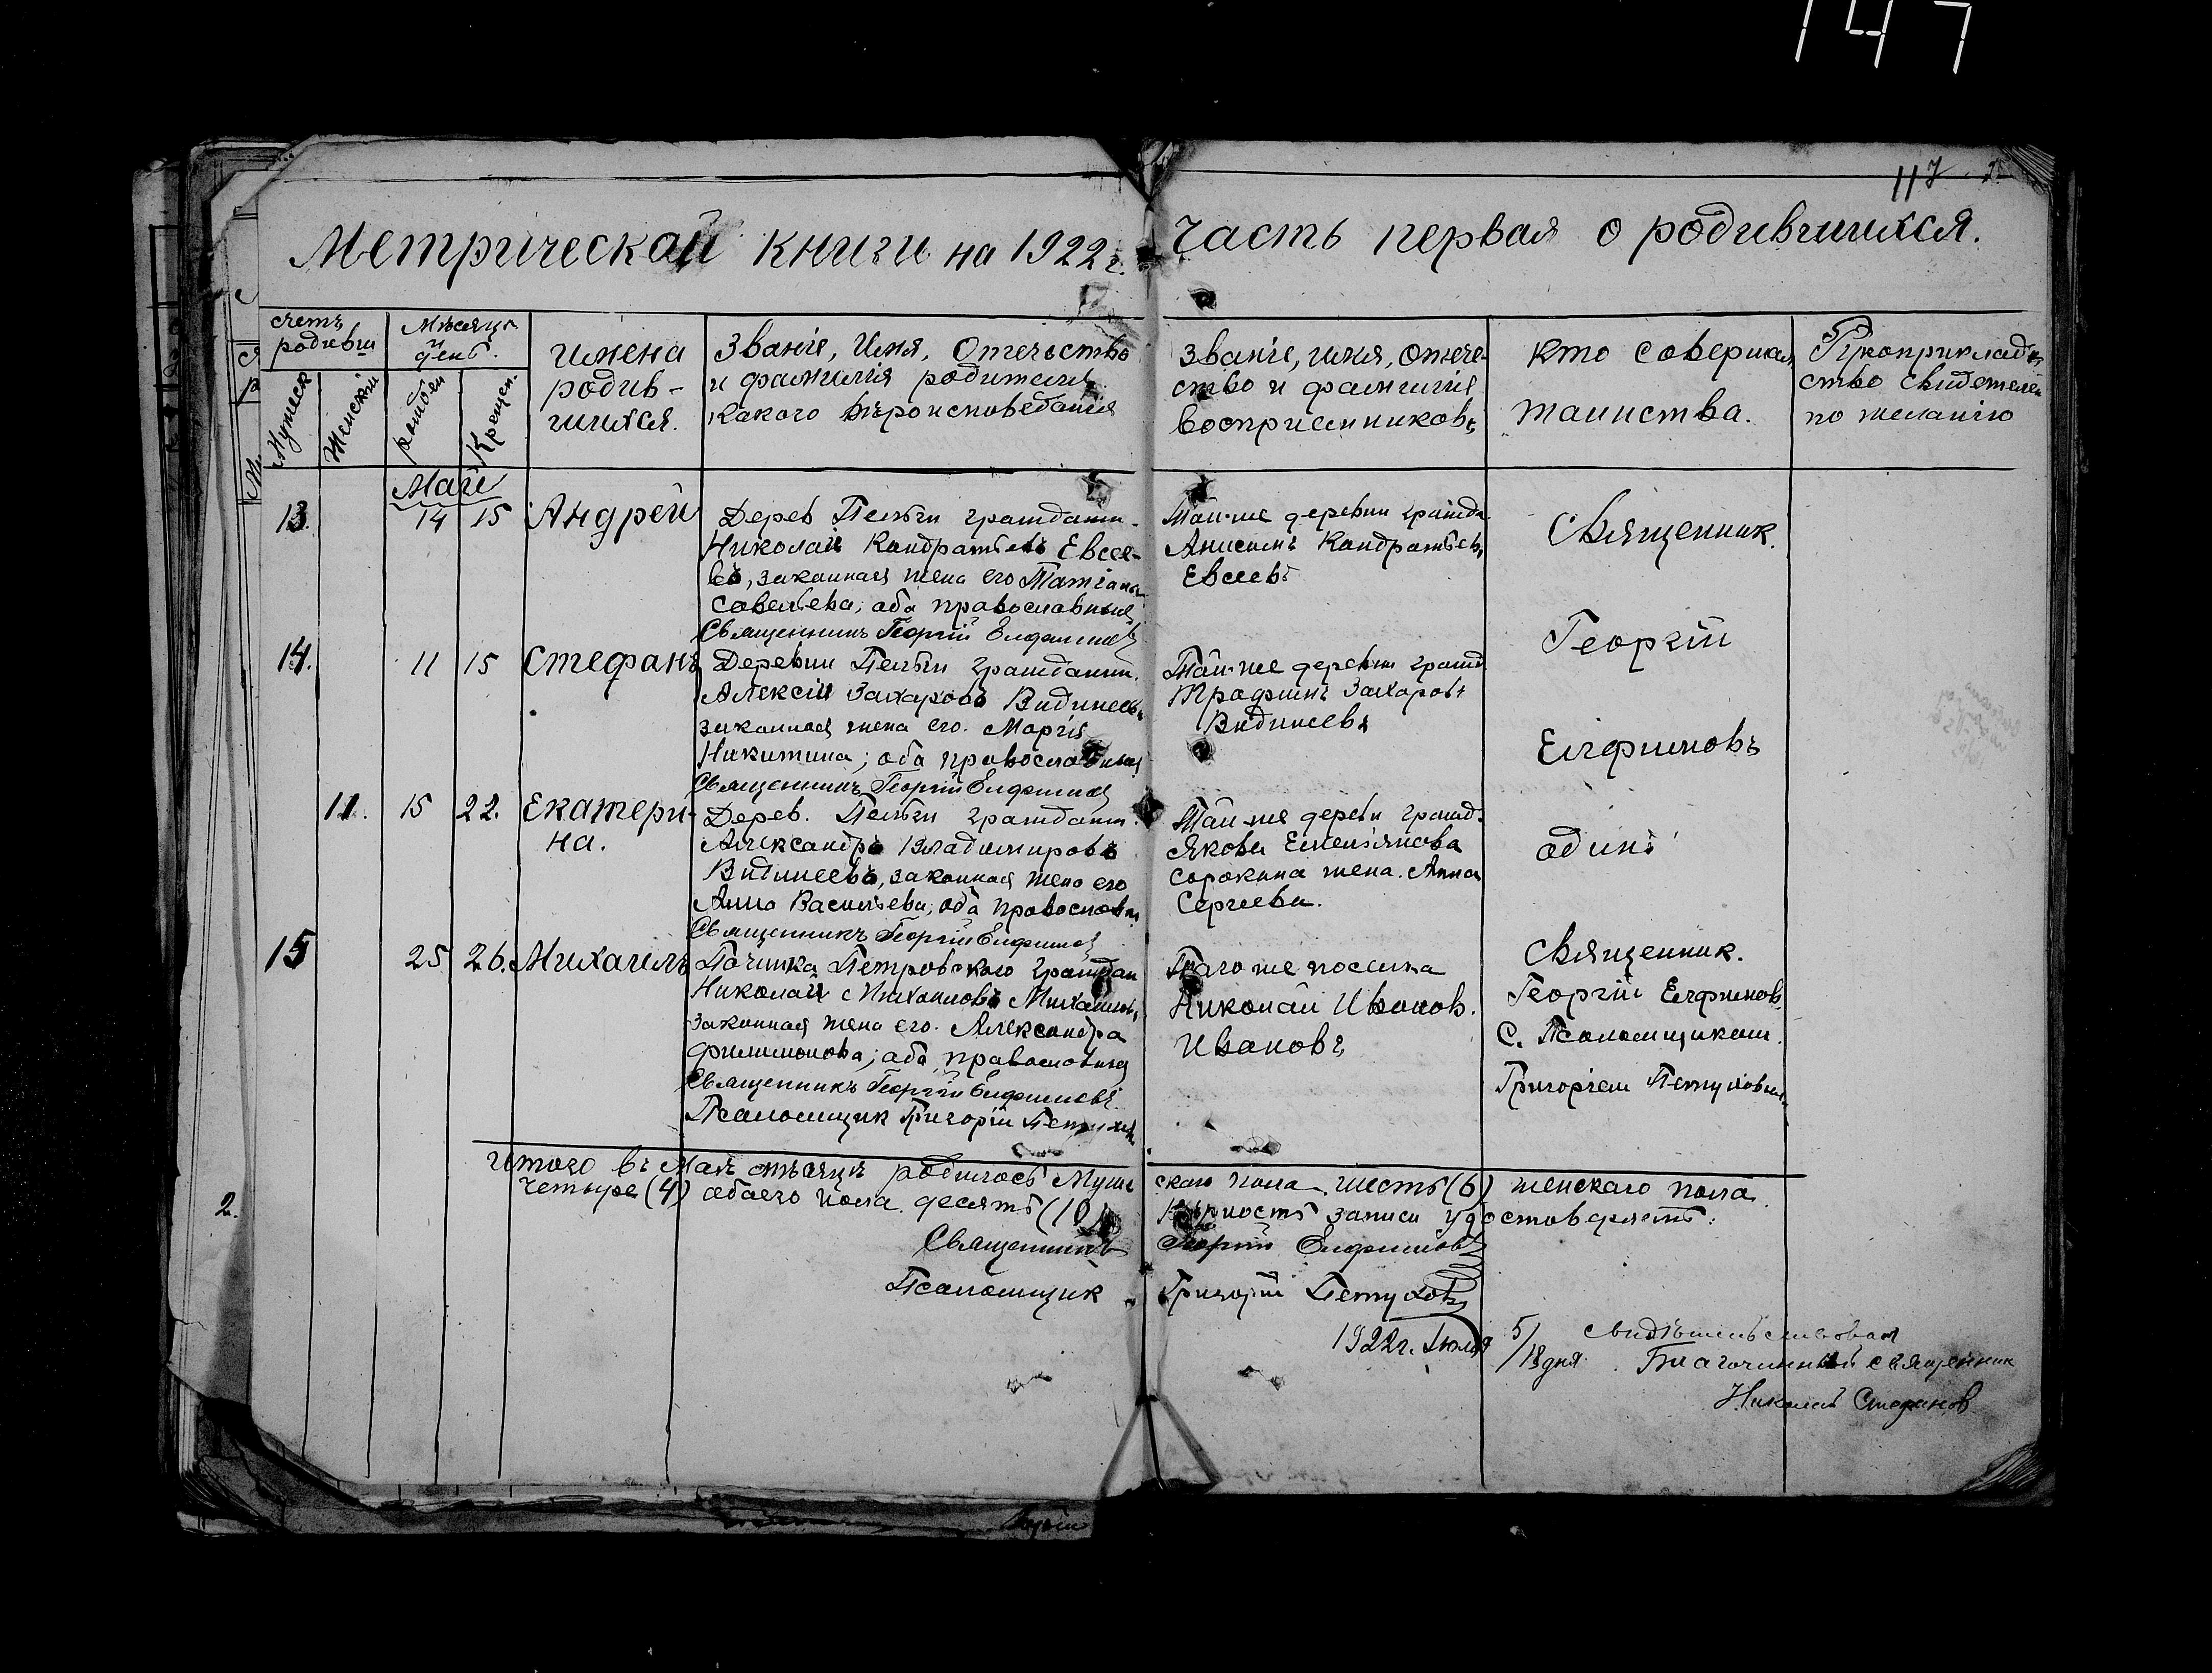 147
117
Метрической книги на 1922 г. Часть первая о родившихся.
счетъ родивш
Мужеск
Женскій
Мѣсяцъ и день.
рожден
Крещен.
имена родив-шихся.
Званіе, Имя, Отечество
и фамилія родителей
какого вѣроисповеданія
Званіе, имя, отече-
ство и фамилія
восприемниковъ
Кто совершал
таинства.
Рукоприклад
ство свидетелей
по желанію
Май
13. 14 15 Андрей
Дерев Пельги граждан.
Николай Кондратьевъ Евсее-
въ, законная жена его Татіана
Савельева; оба православные
Священникъ Георгій Елфимов
Той-же деревни гражд
Анисимъ Кондратьевъ
Евсеевъ
Священник.
Георгій
Елфимовъ
одинъ
14. 11 15 Стефанъ
Деревни Пельги граждан.
Алексій Захаровъ Видинеевъ
законная жена его. Марія
Никитина; оба православныя
Священникъ Георгій Елфимов
Той-же деревни гражд
Трофимъ Захаровъ
Видинеевъ
11. 15 22. Екатери-
на.
Дерев. Пельги граждан.
Александръ Владимировъ
Видинеевъ, законная жена его
Анна Васильева; оба православн
Священникъ Георгій Елфимов
Той-же деревн гражд.
Якова Емельянова
Сорокина жена. Анна
Сергеева.
15 25 26. Михаилъ
Починка Петровского граждан
Николай Михаиловъ Михаиловъ,
законная жена его. Александра
Филимонова; оба православныя
Священникъ Георгій Елфимовъ
Псаломщик Григорій Петухов
Того же поселка
Николай Иванов.
Ивановъ
Священник.
Георгій Елфимов
С. Псаломщиком.
Григоріем Петуховым
итого въ Маѣ мѣсяцѣ родилось Муже ского пола. шесть (6) женскаго пола
четыре (4) обоего пола. десять (10) Вѣрность записи удостоверяетъ:
Священникъ Георгій Елфимовъ
Псаломщик Григорій Петуховъ
1922 г. Іюля 5/18 дня. свидѣтельствовал
Благочинный священник
Николай Стефанов
2.